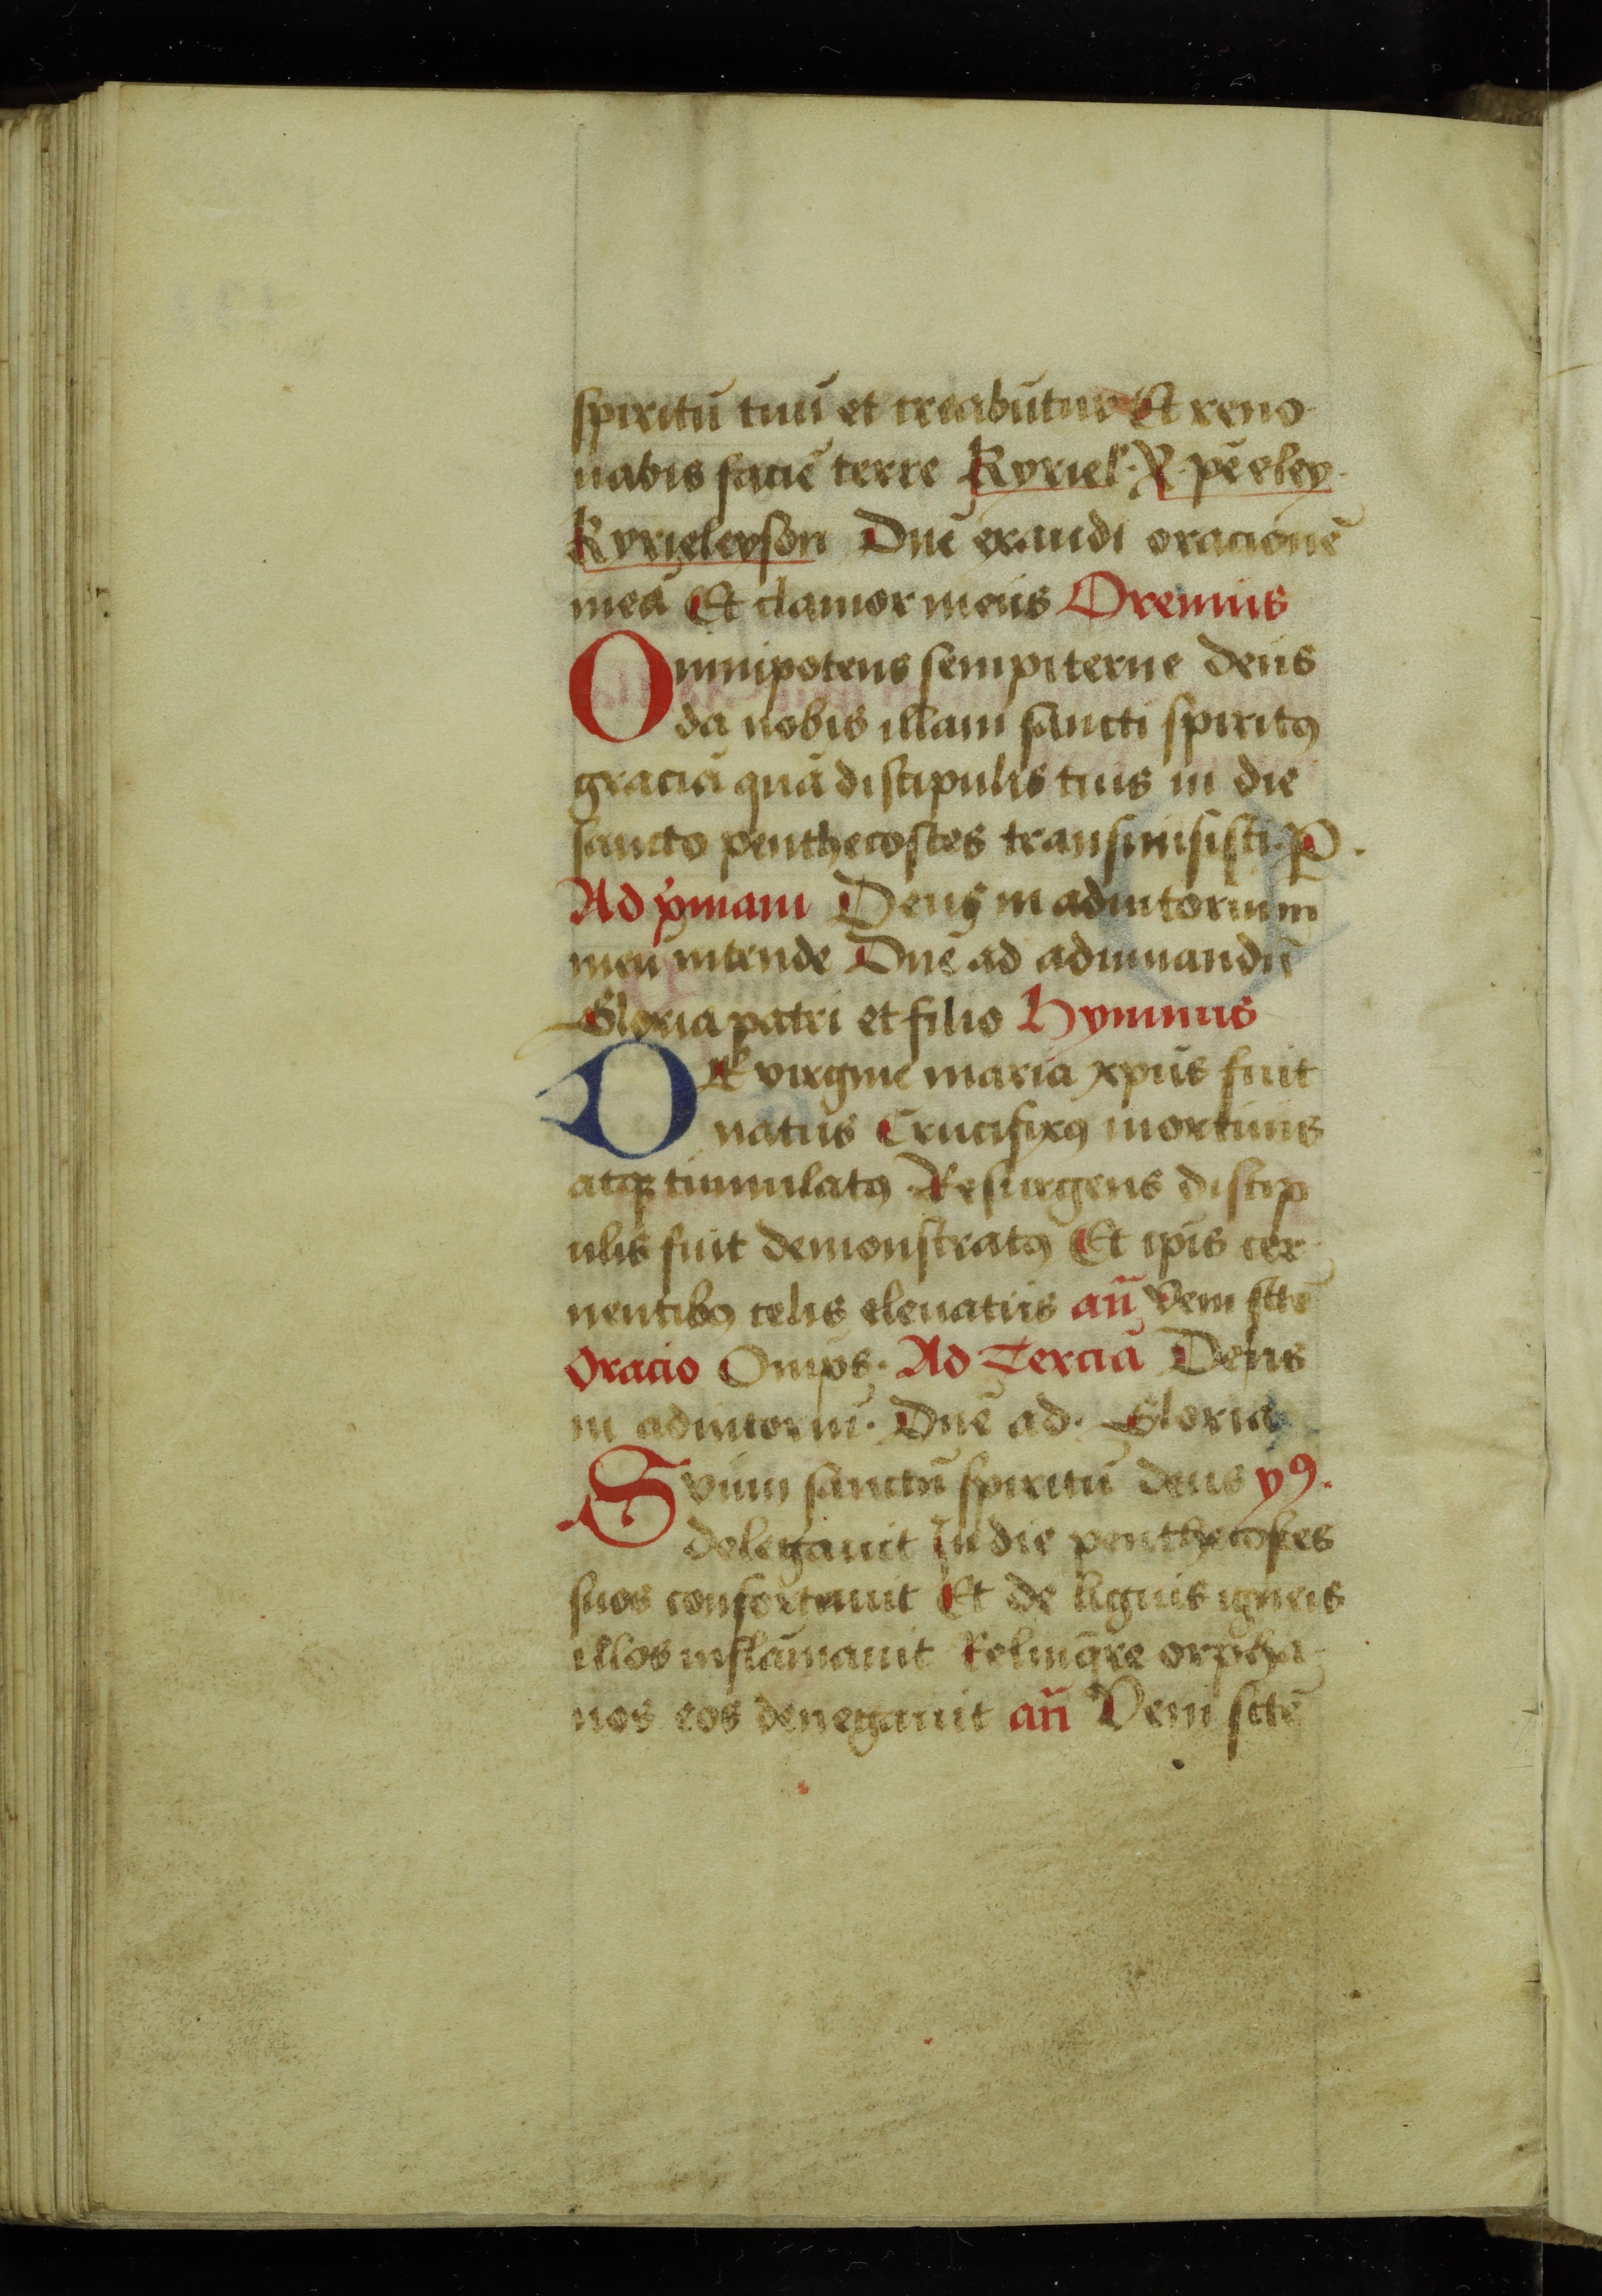 spiritū tuū et creabūtur Et reno
uabis faciē terre Kyriel· R· pe eley·
Kyrieleyson Dne exaudi oracionē
meā Et clamor meus Oremus
Omnipotens sempiterne deus
da nobis illam sancti spiritꝰ
graciā quā discipulis tuis in die
sancto penthecostes transmisisti· P·
Ad pͥmam Deus in adiutorium
meū intende Dne ad adiuuandū
Gloria patri et filio Hymnus
DE virgine maria xpūs fuit
natus Crucifixꝰ mortuus
atqꝫ tumulatꝰ Resurgens discip
ulis fuit demonstratꝰ Et ipīs cer
nentibꝰ celis eleuatus an̄ Veni sctē
Oracio Omīps· Ad Terciā Deus
in adiutoriū· Dnē ad· Gloria
Svum sanctū spiritū deus yꝰ·
delegauit In die penthecostes
suos confortauit Et de liguis igneis
illos inflāmauit Relinq̄re orpha
nos eos denegauit an̄ Veni sctē